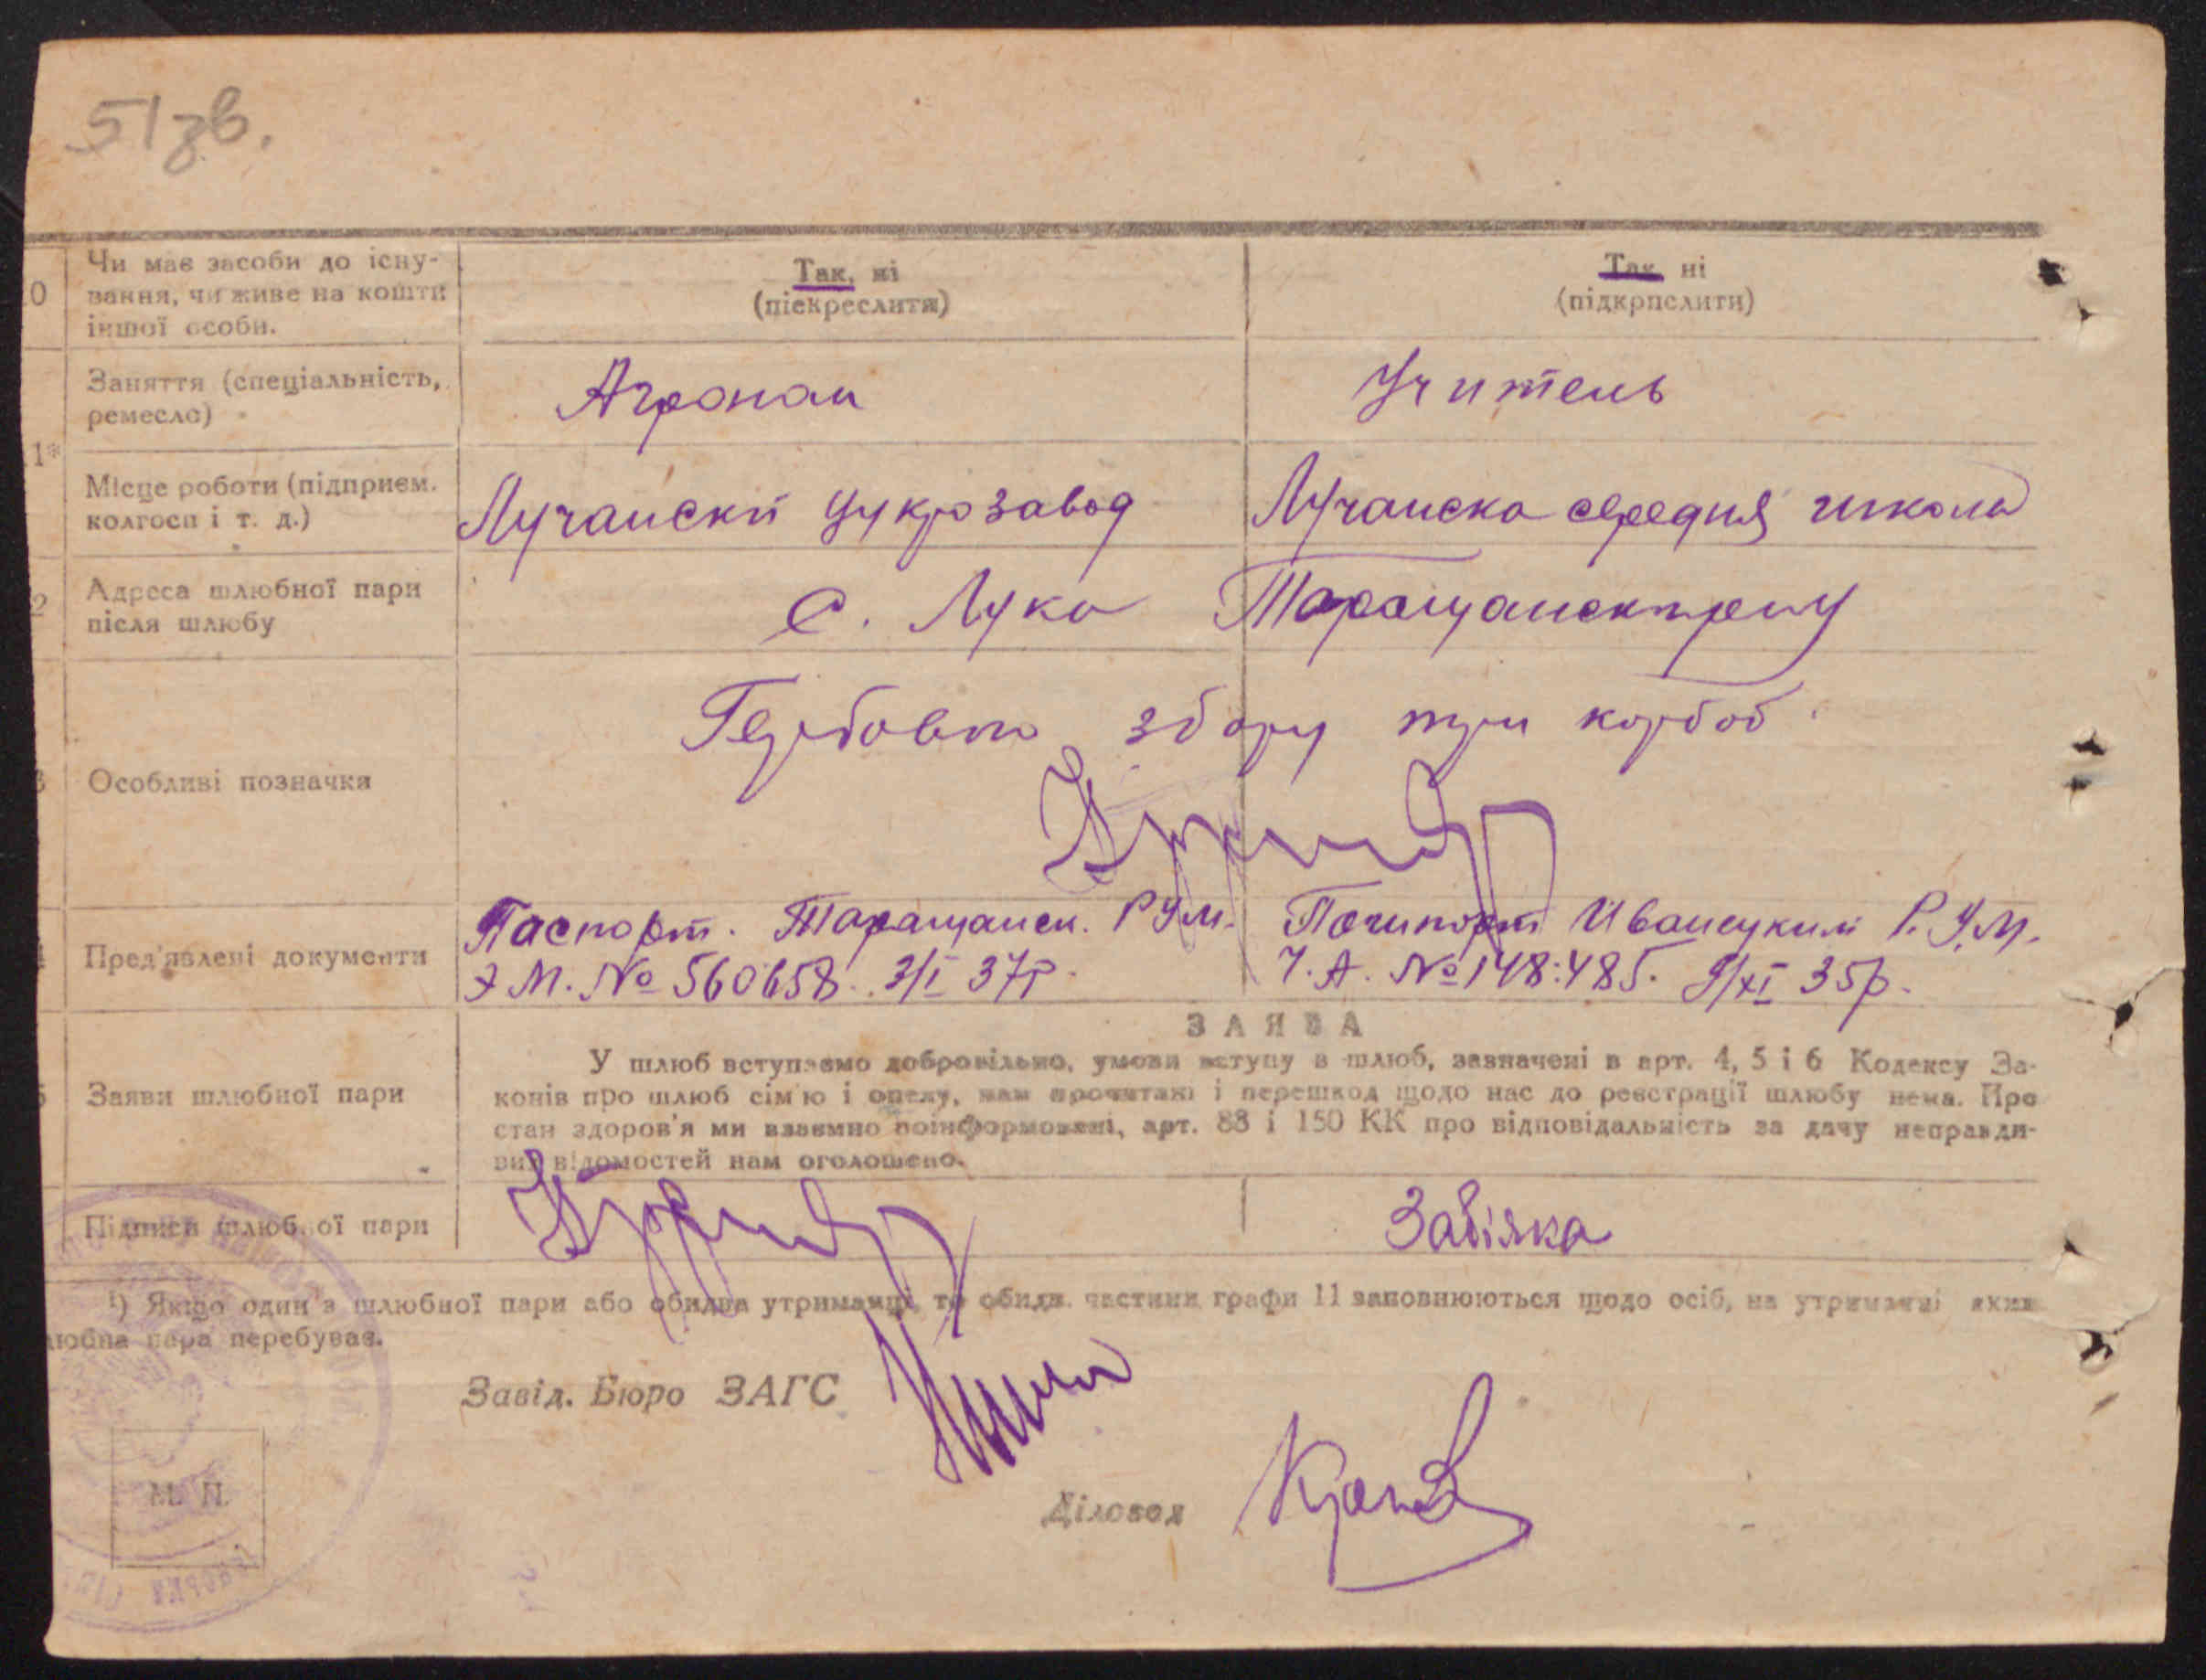 51зв.
10 Чи має засоби до існу-
вання, чи живе на кошти
іншої особи.
Так, ні
(піекреслитя)
Так ні
(підкрпслити)
11*
Заняття (спеціальність,
ремесло)
Агроном
Учитель
Місце роботи (підприєм.
колгосп і т. д.)
Лучанскй цукрозавод
Лучанска середня школа
Адреса шлюбної пари
після шлюбу
с. Лука
Особливі позначки
збору три карбов.
Пред'явлені документи
Паспорт. Таращанск. РУМ.
Э М. № 560658. 3/I 37р.
Р.У.М.
Ч.А. № 148:485. 9/XI 35р.
ЗАЯВА
Заяви шлюбної пари
У шлюб вступаємо добровільно, умови вступу в шлюб, зазначені в арт. 4, 5 і 6 Кодексу За-
конів про шлюб сім'ю і опеку, нам прочитані і перешкод щодо нас до реєстрації шлюбу нема. Про
стан здоров'я ми взаємно поінформовані, арт. 88 і 150 КК про відповідальність за дачу неправди-
вих відомостей нам оголошено.
Підписи шлюбної пари
Забіяка
¹) Якщо один з шлюбної пари або обидва утриманці, то обидві частини графи 11 заповнюються щодо осіб, на утриманні яких
шлюбна пара перебуває.
Завід. Бюро ЗАГС
Діловод
М. П.